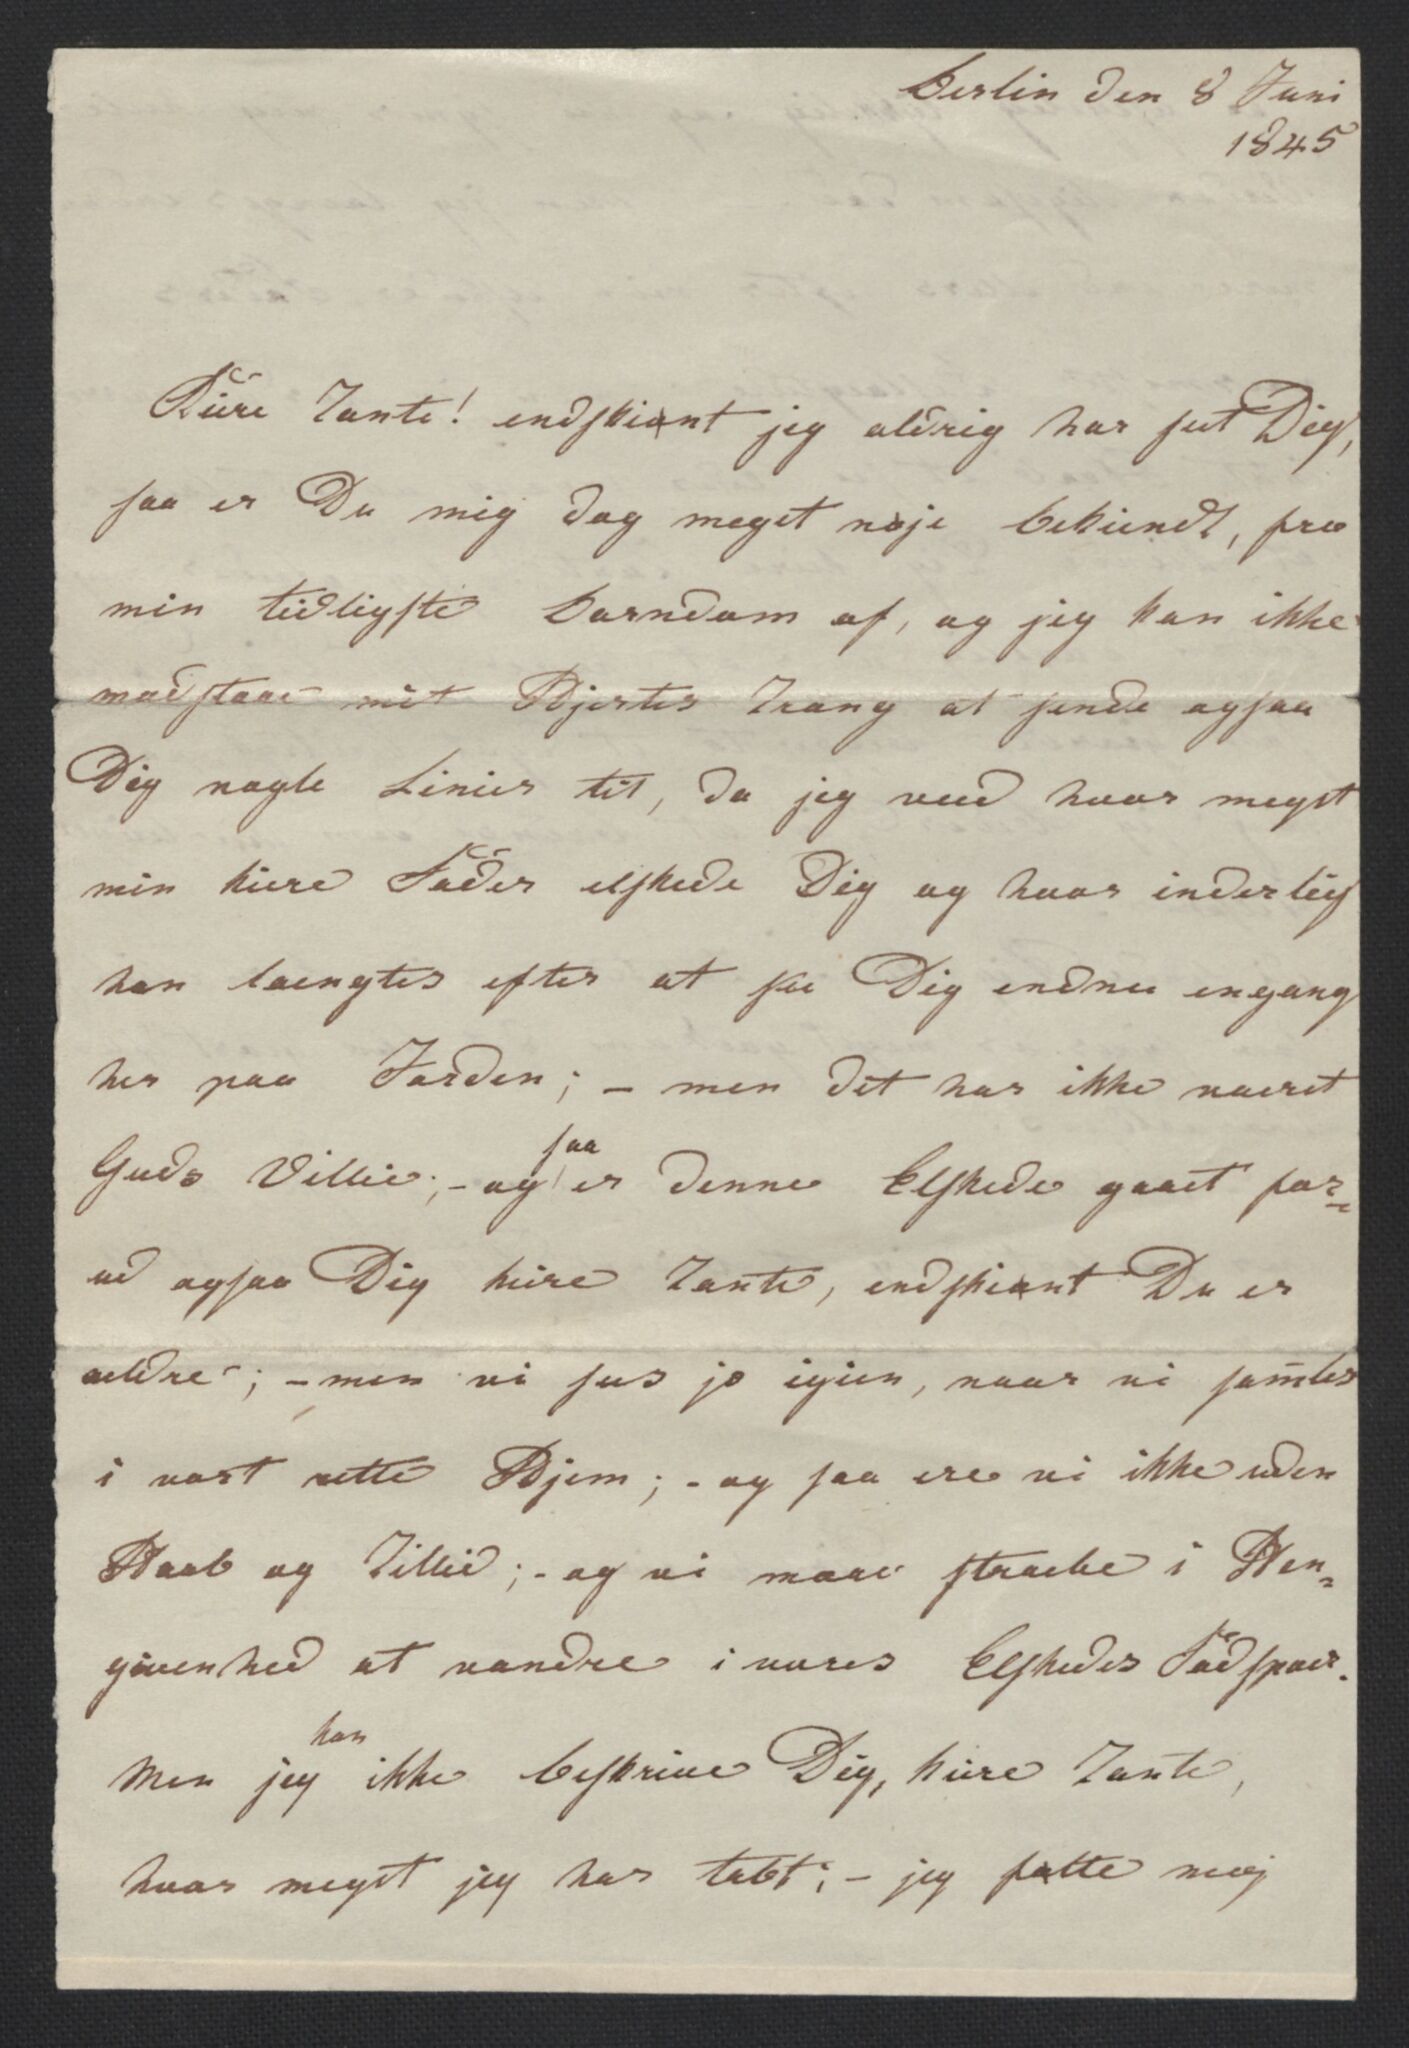 Berlin den 8 Juni
1845
Kiere Tante! endskiønt jeg aldrig har seet Dig,
saa er Du mig dog meget nøje bekiendt, fra
min tidligste Barndom af, og jeg kan ikke
modstaae mit Hjertes Trang at sende ogsaa
Dig nogle Linier til, da jeg veed hvor meget
min kiere Fader elskede Dig og hvor inderlig
han laengtes efter at see Dig endnu engang
her paa Jorden; – men det har ikke vaeret
Guds Villie; – og saa er denne Elskede gaaet for-
ud ogsaa Dig kiere Tante, endskiønt Du er
aeldre; – men vi sees jo igien, naar vi samles
i vort rette Hjem; – og saa ere vi ikke uden
Haab og Tillid; – og vi maae straebe i Hen-
givenhed at vandre i vores Elskedes Fodspoer.
Men jeg kan ikke beskrive Dig, kiere Tante,
hvor meget jeg har tabt; – jeg satte mig